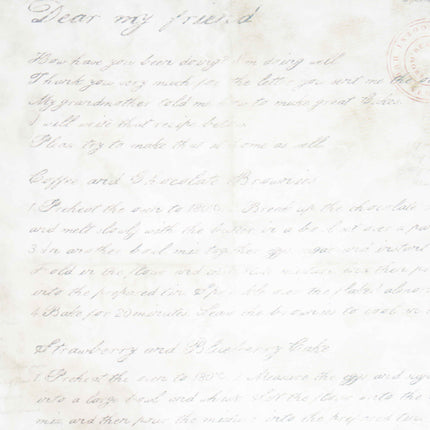 Dear my friend
How have you been doing? I'm doing well
Thank you very much for the letter you sent me the
My grandmother told me how to make great Cakes.
I will write that recipe below
Please try to make this at home as well
Coffee and Chocolate Brownies
1. Preheat the oven to 180°C. 2. Break up the chocolate
and melt slowly with the butter in a bowl set over a pan
3. In another bowl mix together eggs sugar and instant
Fold in the flour and mixture then
into the prepared tin the flaked
4. Bake for 20 minutes. Leave the brownies to cool in
Strawberry and Blueberry Cake
1. Preheat the oven to 180°C 2. Measure the eggs and
into a large bowl and the flour into the
mix and then pour the mixture into the prepared tin